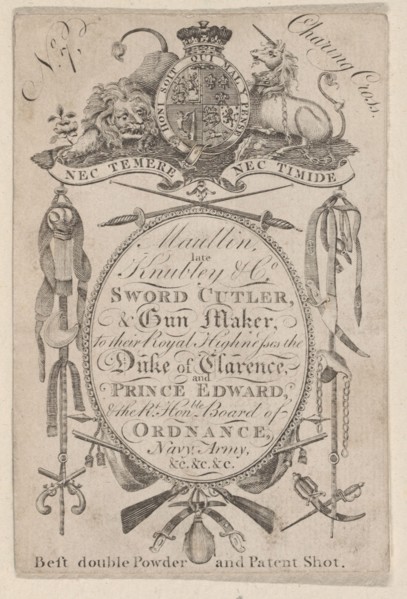 No. 7.
Charing Cross.
HONI SOIT QUI MAL Y PENSE
NEC TEMERE NEC TIMIDE
Maullin,
late
Knubley & Co.
SWORD CUTLER,
& Gun Maker,
to their Royal Highneſses the
Duke of Clarence,
and
PRINCE EDWARD,
& the Rt. Honble. Board of
ORDNANCE,
Navy, Army,
&c. &c. &c.
Beſt double Powder and Patent Shot.